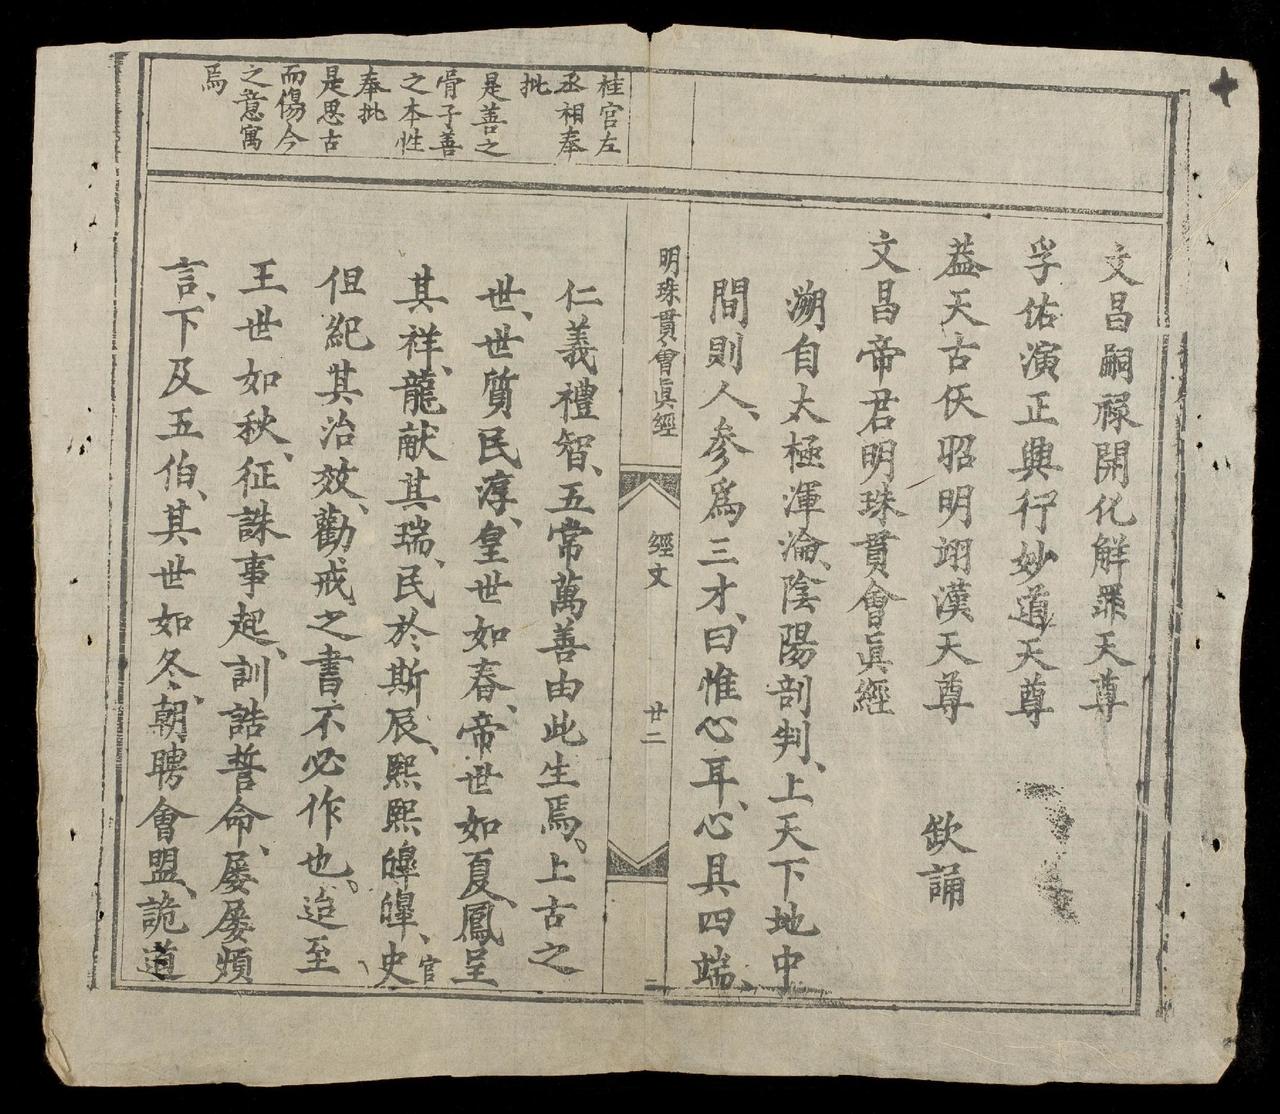 文昌嗣祿開化解罪天尊
孚佑演正興行妙道天尊
蓋天古仸昭明翊漢天尊 欽誦
文昌帝君明珠貫會眞經
溯自太極渾淪、陰陽剖判、上天下地中
間則人、參爲三才、曰惟心耳、心具四端、
明珠貫會眞經 經文 廿二
桂宮左
丞相奉
批
是善之
骨子善
之本性
奉批
是思古
而傷今
之意寓
焉
仁義禮智、五常萬善由此生焉。上古之
世、世質民淳、皇世如春、帝世如夏、鳳呈
其祥、龍献其瑞、民於斯辰、熙熙皡皡、史官
但紀其治效、勸戒之書不必作也。迨至
王世如秋、征誅事起、訓誥誓命、屢屢煩
言、下及五伯、其世如冬、朝聘會盟、詭道